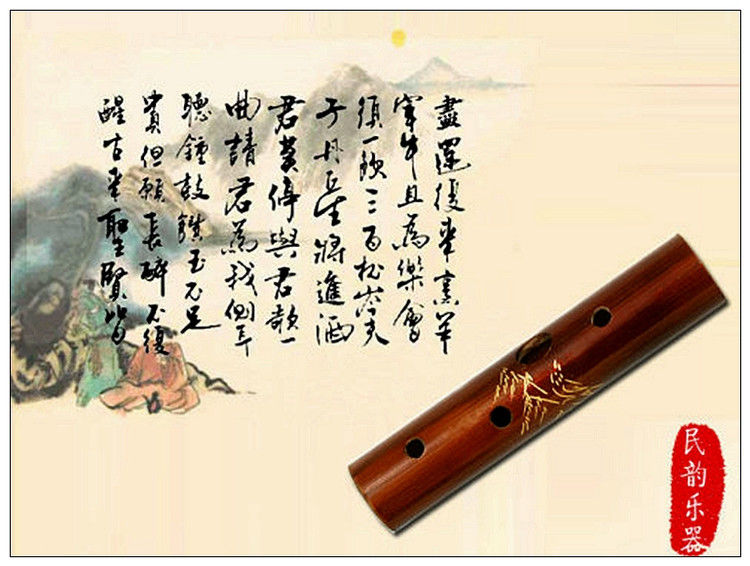 盡還復來烹羊
宰牛且為樂會
須一飲三百杯岑夫
子丹丘生將進酒
君莫停與君歌一
曲請君為我側耳
聽鍾鼓饌玉不足
貴但願長醉不復
醒古來聖賢皆
民韵乐器